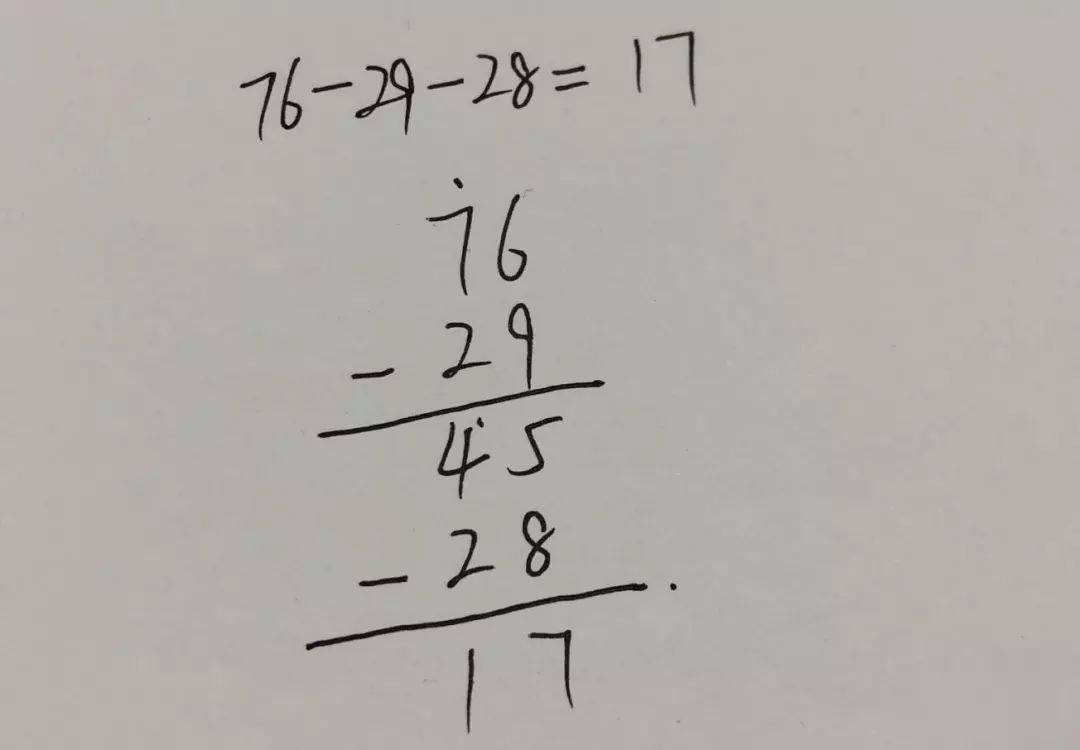 76-29-28=17
76
-29
45
-28
17